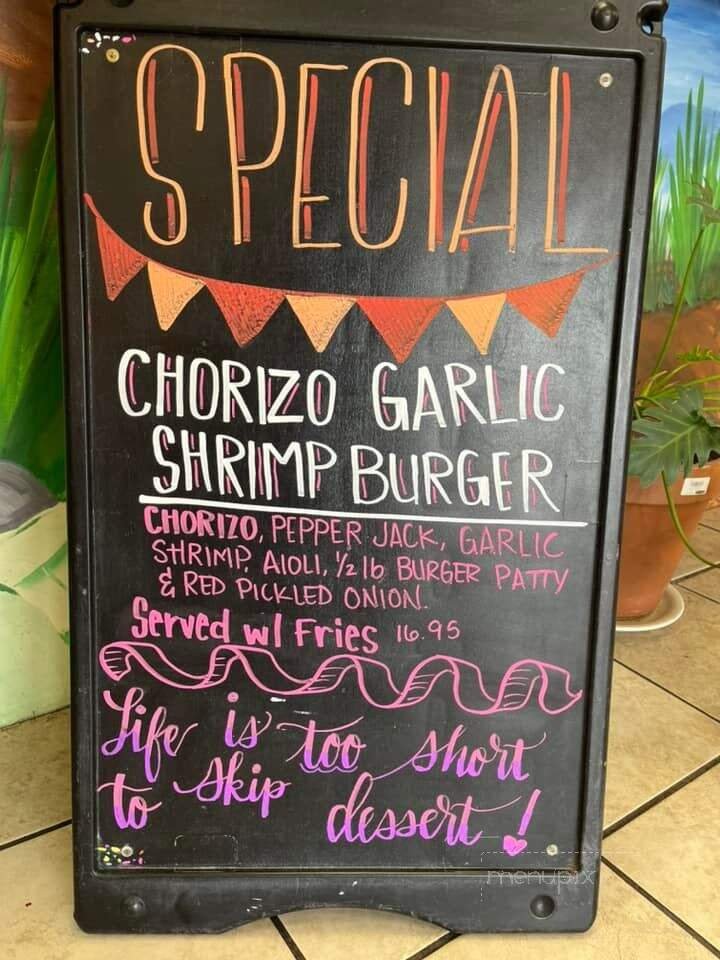 SPECIAL
CHORIZO GARLIC
SHRIMP BURGER
CHORIZO, PEPPER JACK, GARLIC
SHRIMP, AIOLI, 1/2 lb BURGER PATTY
& RED PICKLED ONION.
Served w/ Fries 16.95
Life is too short
to skip dessert!
menupix